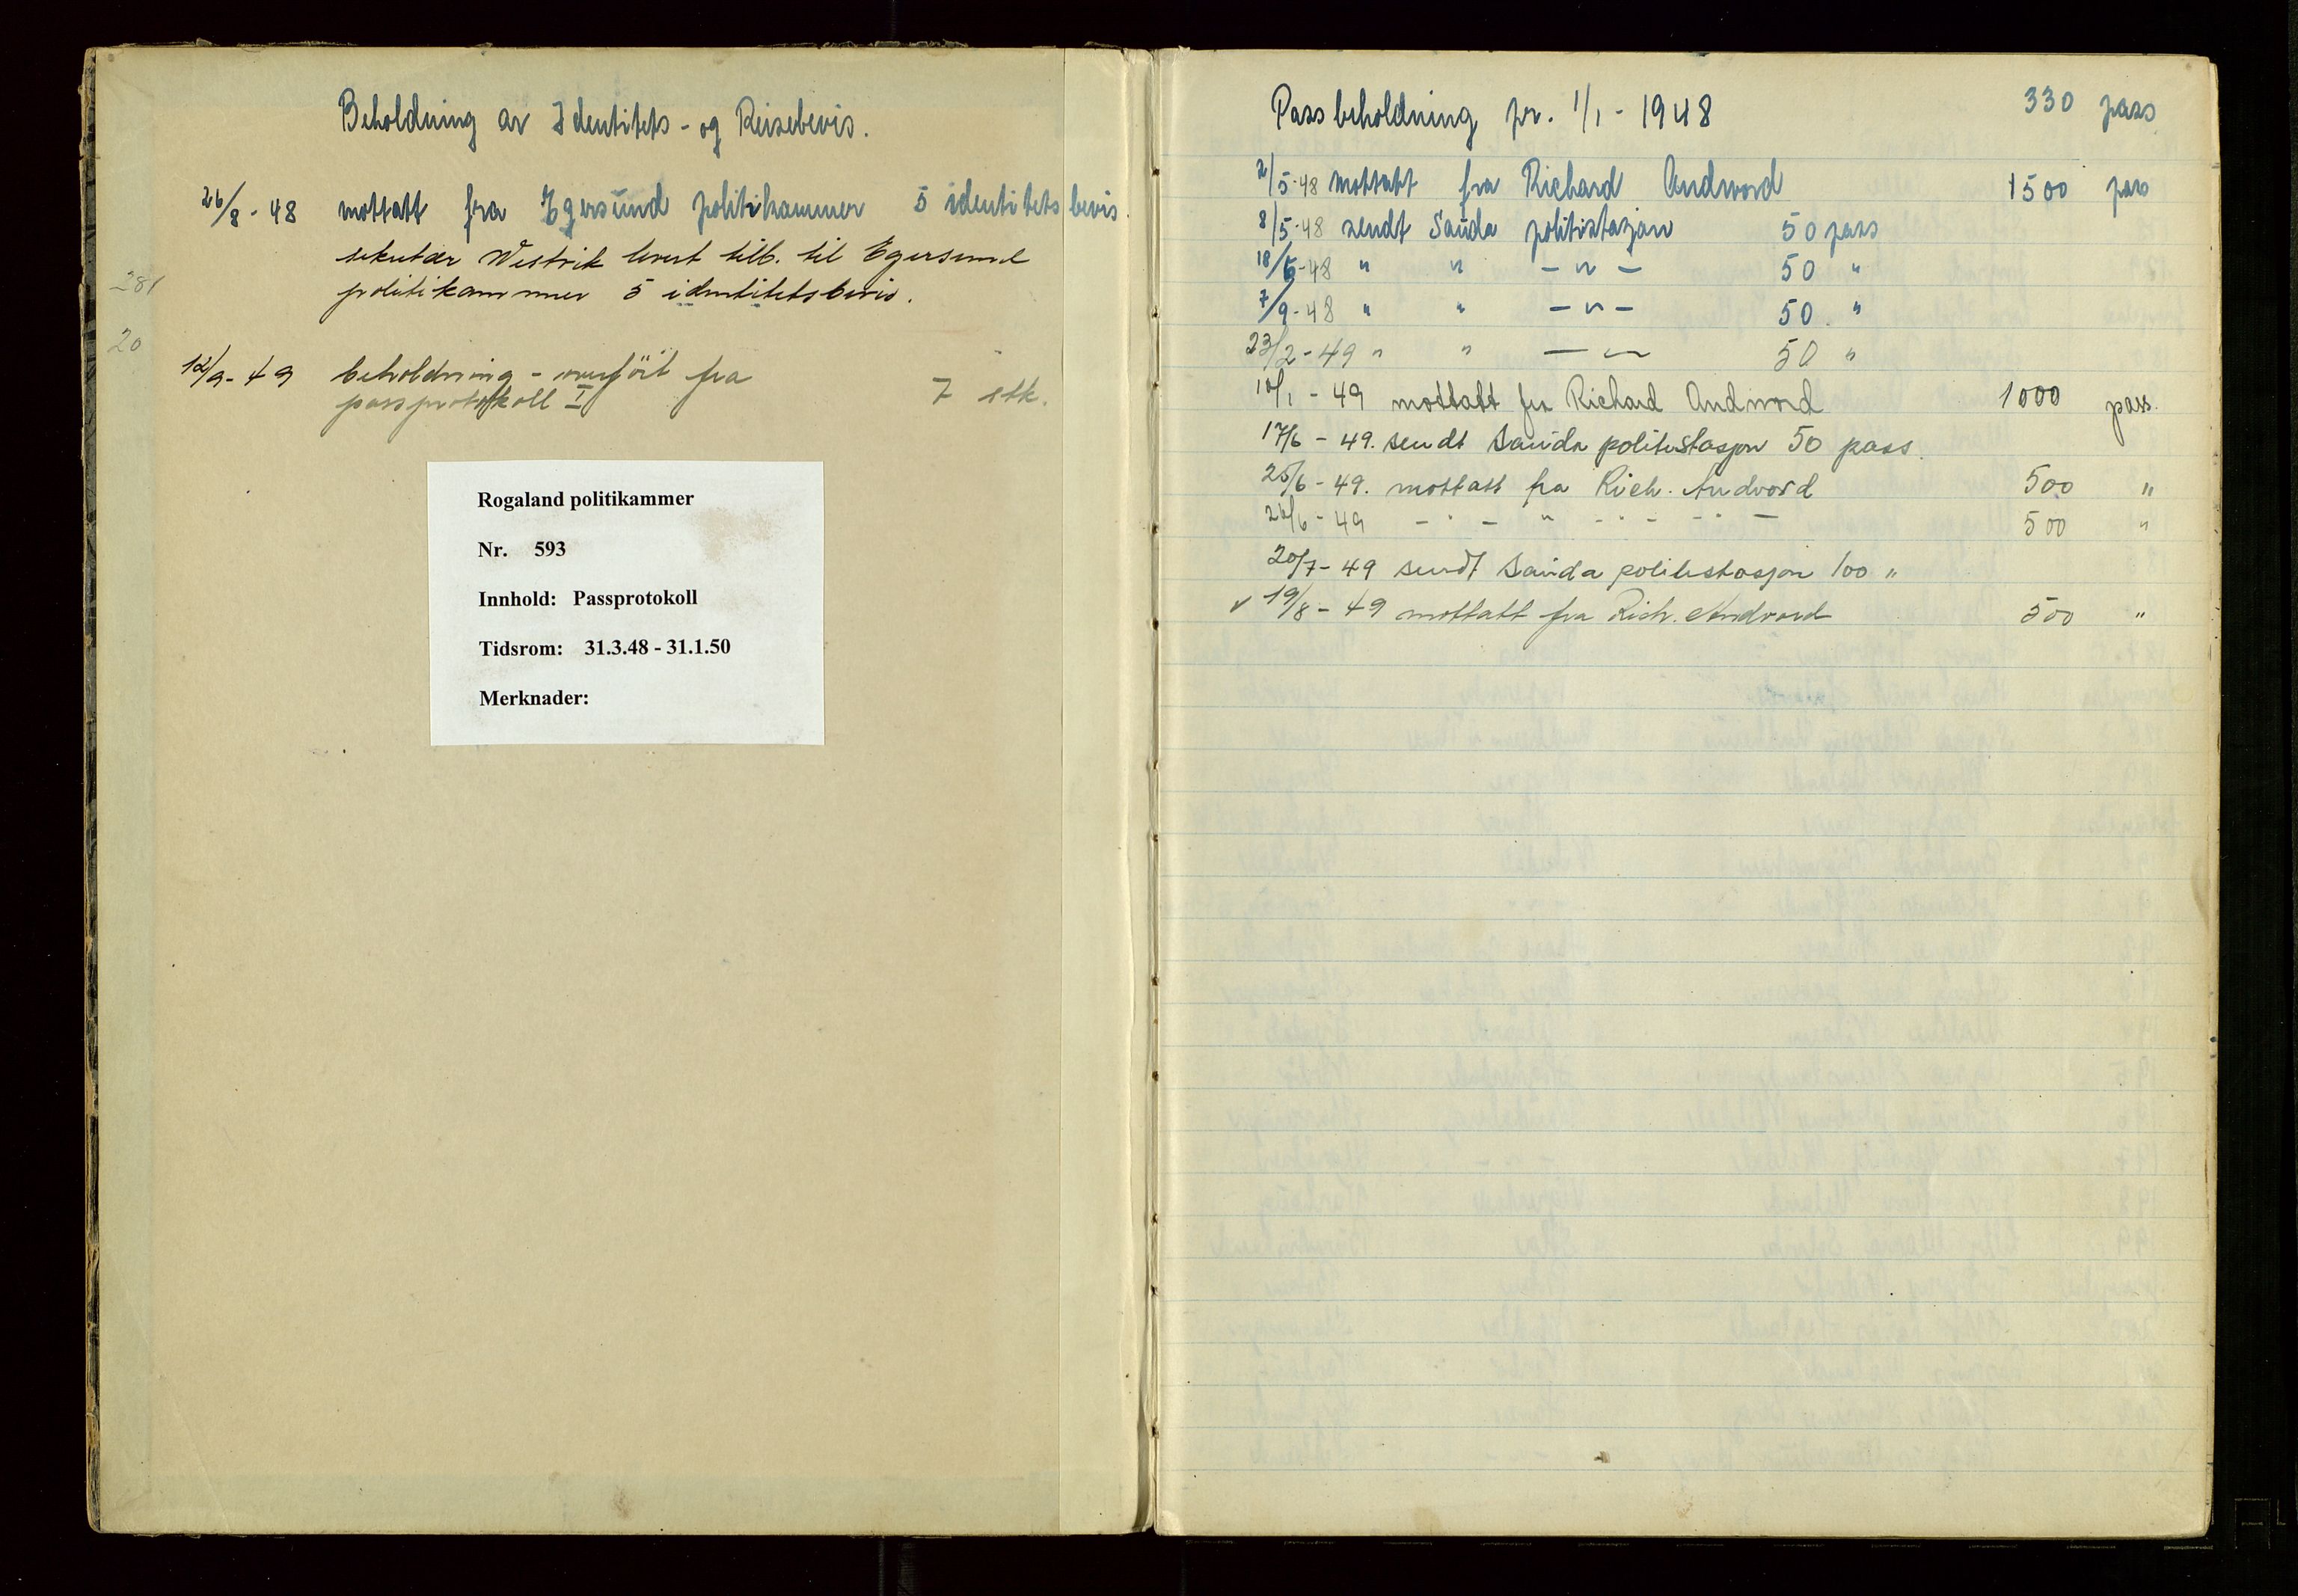 Beholdning av Identitets- og Reisebevis.
26/8-48 mottatt fra Egersund politikammer 5 identitetsbevis.
sekretær Westrik levert tilb. til Egersund
politikammer 5 identitetsbevis.
281
20
12/9-49 beholdning - overfört fra
passprotokoll I 7 stk.
Rogaland politikammer
Nr. 593
Innhold: Passprotokoll
Tidsrom: 31.3.48 - 31.1.50
Merknader:
Passbeholdning pr. 1/1-1948 330 pass
2/5-48 mottatt fra Richard Andvord 1500 pass
8/5-48 sendt Sauda politistasjon 50 pass
18/6-48 " " - " - 50 "
7/9-48 " " - " - 50 "
23/2-49 " " - " - 50 "
10/1-49 mottatt fra Richard Andvord 1000 pass.
17/6-49. sendt Sauda politistasjon 50 pass.
25/6-49. mottatt fra Rich. Andvord 500 "
26/6-49 - " - " - " - - " - 500 "
20/7-49 sendt Sauda politistasjon 100 "
v 19/8-49 mottatt fra Rich. Andvord 500 "